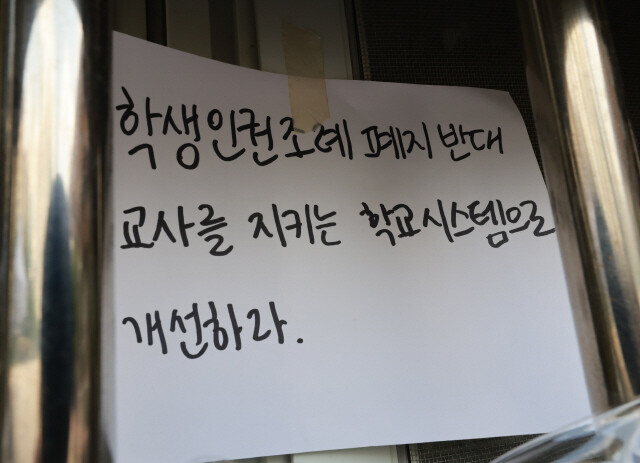 학생인권조례 폐지 반대
교사를 지키는 학교시스템으로
개선하라.